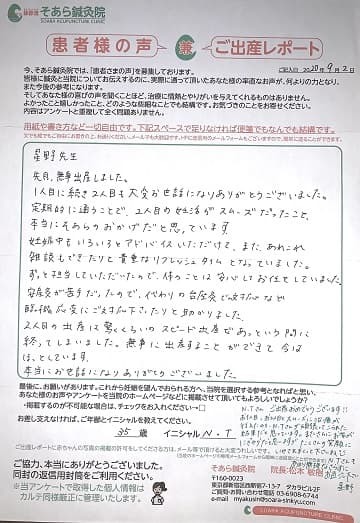 そあら鍼灸院
SOARA ACUPUNCTURE CLINIC
患者様の声 兼 ご出産レポート
ご記入日 2020年9月2日
今、そあら鍼灸院では、「患者さまの声」を募集しております。
皆様に鍼灸と当院についてお伝えするのに、実際に通って頂いたあなた様の率直なお声が、何よりの力となり、
また今後の参考になります。
そしてあなた様の喜びの声を聞くことほど、治療に情熱とやりがいを与えてくれるものはありません。
よかったこと嬉しかったこと、どのような些細なことでも結構です。お気づきのことをお寄せください。
内容はアンケートと重複して全く問題ありません。
用紙や書き方など一切自由です。下記スペースで足りなければ便箋でもなんでも結構です。
星野先生
先月、無事出産しました。
1人目に続き2人目も大変お世話になりありがとうございました。
定期的に通うことで、2人目の妊活がスムーズだったこと、
本当にそあらのおかげだと思っています。
妊娠中もいろいろとアドバイスいただけて、また、あれこれ
雑談もできたりと貴重なリフレッシュタイムとなっていました。
ずっと担当していただいたので、体のことは安心してお任せしていました。
安産灸が苦手だったので、代わりの台座灸で対応など
臨機応変にご対応下さったりと助かりました。
2人目の出産は驚くくらいのスピード出産であっという間に
終ってしまいました。無事に出産することができて今は
ほっとしています。
本当にお世話になりありがとうございました。
最後に、お願いがあります。これから妊娠を望んでおられる方へ、当院を選択する参考となればと思い、
あなた様のお声やアンケートを当院のホームページなどに掲載させて頂いてもよろしいでしょうか？
・掲載するのが不可能な場合は、チェックをお入れください→□
お差し支えなければ、ご年齢とイニシャルを教えてください。
35歳 イニシャル N.T
ご協力、本当にありがとうございました。
同封の返信用封筒をご利用ください。
※当アンケートで取得した個人情報は
カルテ同様厳正に管理いたします。
そあら鍼灸院 院長:松本 敏樹
〒160-0023
東京都新宿区西新宿7-13-7 タカラビル2F
お問い合わせ電話 03-6908-6744
メール myakusin@soara-sinkyu.com
星野
SOARA ACUPUNCTURE CLINIC